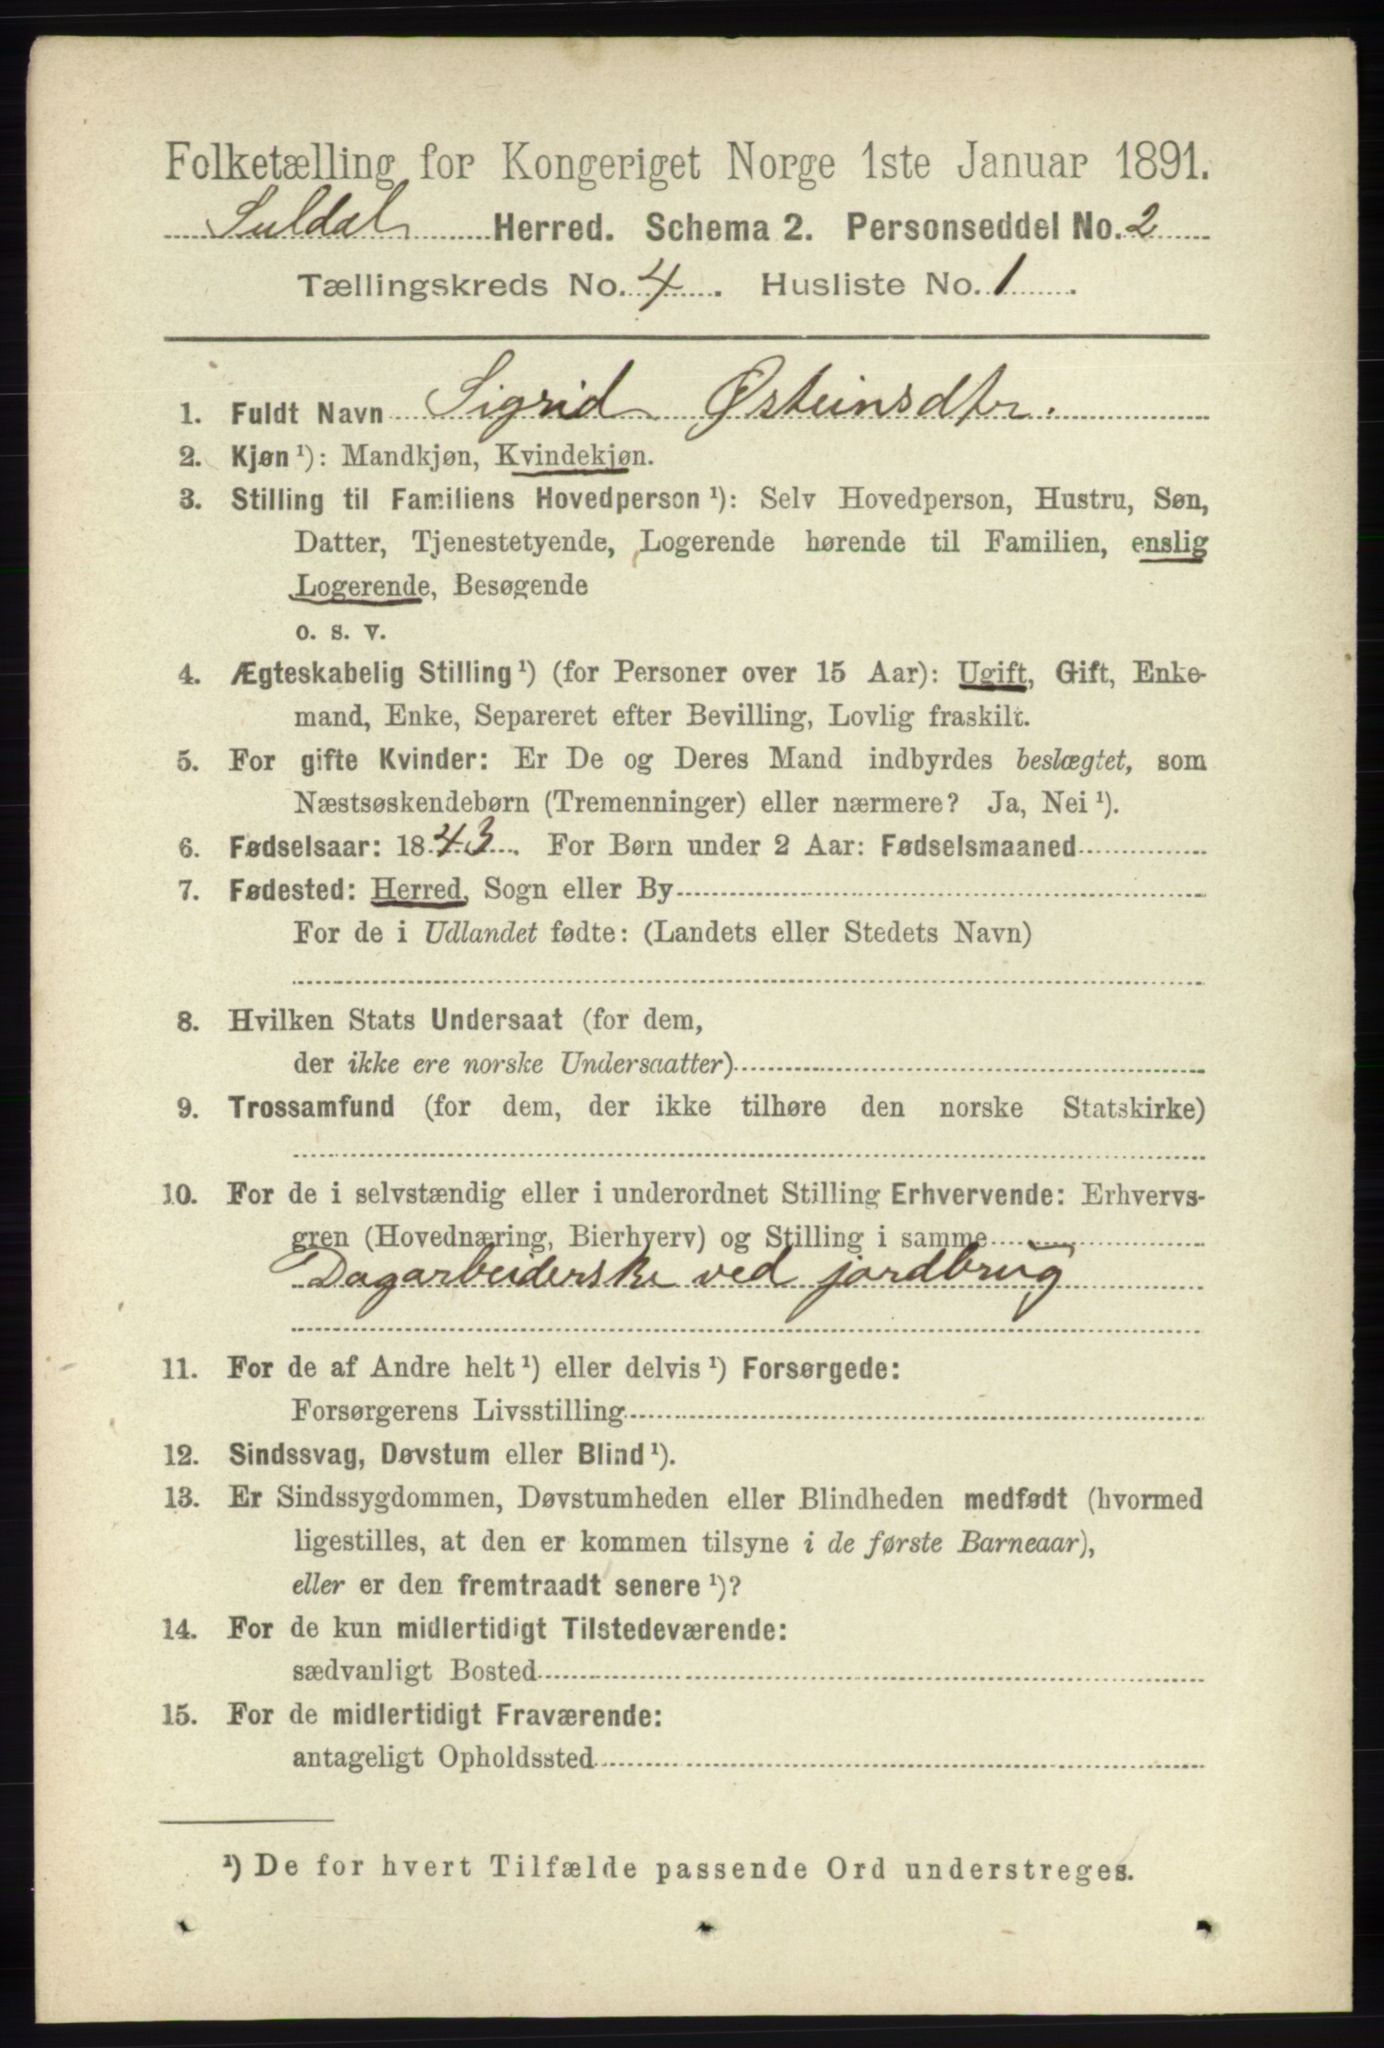 Folketælling for Kongeriget Norge 1ste Januar 1891.
Suldal Herred. Schema 2. Personseddel No. 2
Tællingskreds No. 4. Husliste No. 1.
1. Fuldt Navn Sigrid Østeinsdtr.
2. Kjøn ¹): Mandkjøn, Kvindekjøn.
3. Stilling til Familiens Hovedperson ¹): Selv Hovedperson, Hustru, Søn,
Datter, Tjenestetyende, Logerende hørende til Familien, enslig
Logerende, Besøgende
o. s. v.
4. Ægteskabelig Stilling ¹) (for Personer over 15 Aar): Ugift, Gift, Enke-
mand, Enke, Separeret efter Bevilling, Lovlig fraskilt.
5. For gifte Kvinder: Er De og Deres Mand indbyrdes beslægtet, som
Næstsøskendebørn (Tremenninger) eller nærmere? Ja, Nei ¹).
6. Fødselsaar: 1843. For Børn under 2 Aar: Fødselsmaaned
7. Fødested: Herred, Sogn eller By
For de i Udlandet fødte: (Landets eller Stedets Navn)
8. Hvilken Stats Undersaat (for dem,
der ikke ere norske Undersaatter)
9. Trossamfund (for dem, der ikke tilhøre den norske Statskirke)
10. For de i selvstændig eller i underordnet Stilling Erhvervende: Erhvervs-
gren (Hovednæring, Bierhverv) og Stilling i samme
Dagarbeiderske ved jordbrug
11. For de af Andre helt ¹) eller delvis ¹) Forsørgede:
Forsørgerens Livsstilling
12. Sindssvag, Døvstum eller Blind ¹).
13. Er Sindssygdommen, Døvstumheden eller Blindheden medfødt (hvormed
ligestilles, at den er kommen tilsyne i de første Barneaar),
eller er den fremtraadt senere ¹)?
14. For de kun midlertidigt Tilstedeværende:
sædvanligt Bosted
15. For de midlertidigt Fraværende:
antageligt Opholdssted
¹) De for hvert Tilfælde passende Ord understreges.